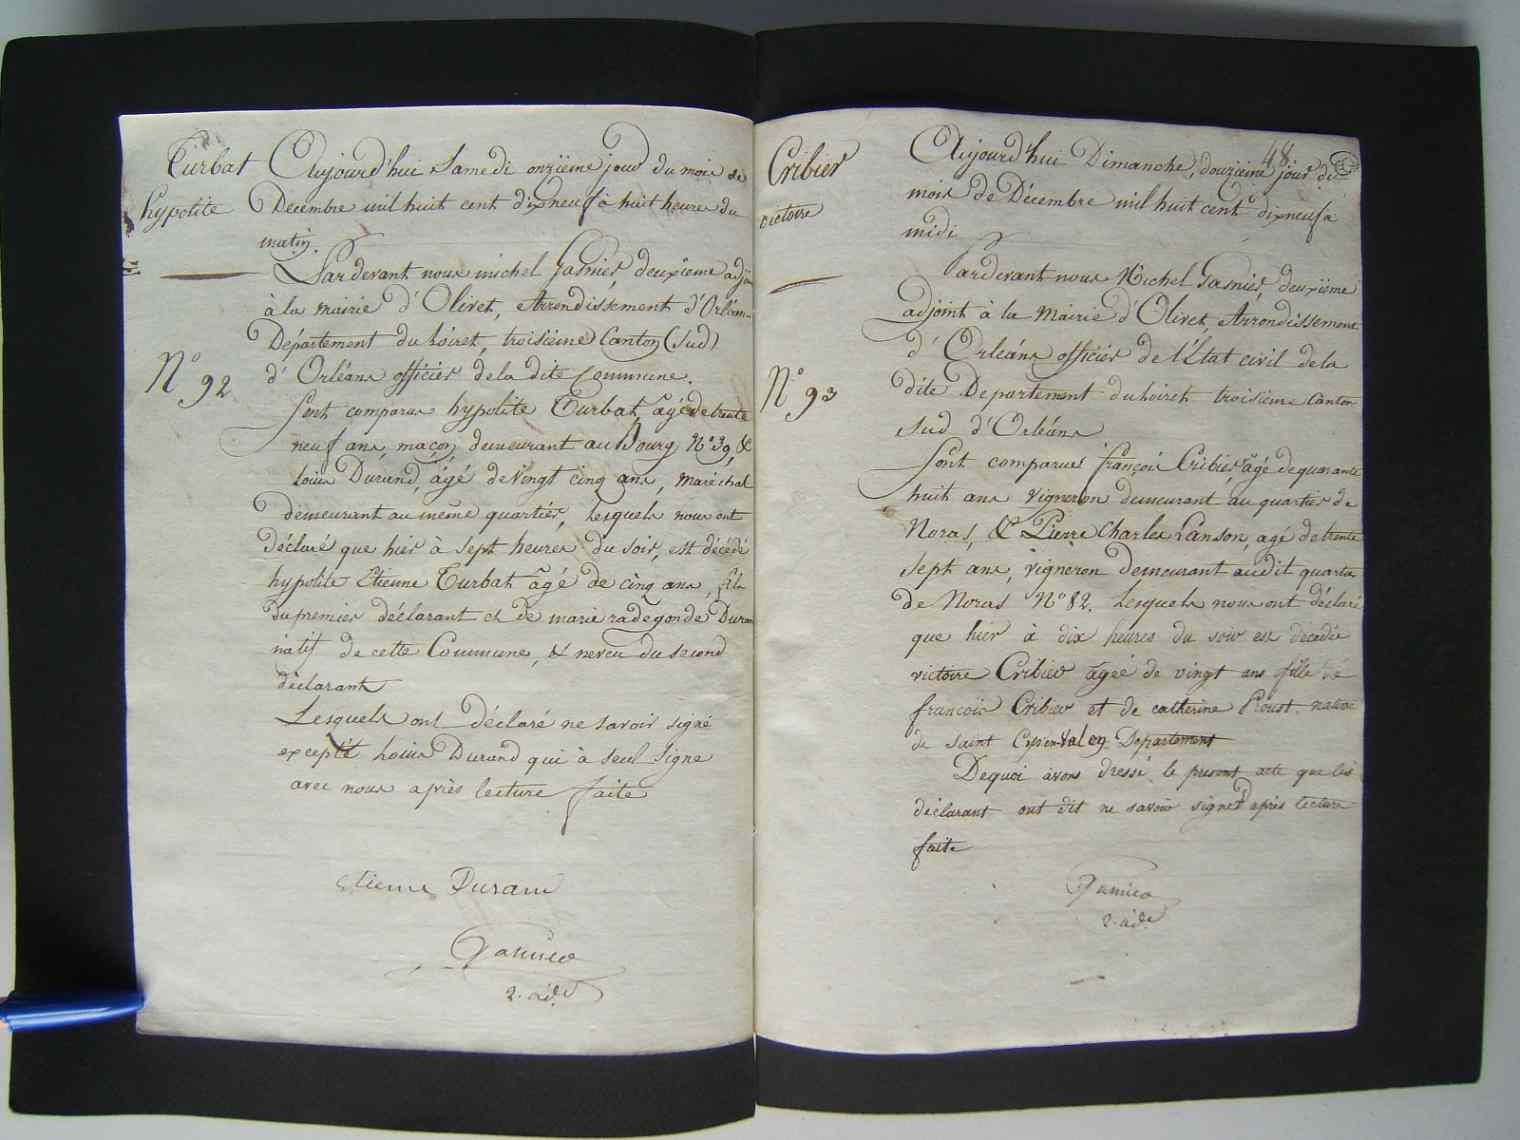 Turbat
hypolite
N° 92
Aujourd'hui Samedi onzïeme jour du mois de
Décembre mil huit cent dixneuf à huit heures du
matin.
Pardevant nous michel Gasnier, deuxieme adjoint
à la mairie d'Olivet, Arrondissement d'Orléans
Département du Loiret, troisieme Canton (Sud)
d'Orléans officier de la dite Commune.
Sont comparus hypolite Turbat, âgé de trente
neuf ans, maçon demeurant au Bourg N° 39, &
Louis Durand, âgé de Vingt cinq ans, maréchal
demeurant au même quartier, Lesquels nous ont
déclaré que hier à sept heures du soir, est décédé
hypolite Etienne Turbat âgé de cinq ans, fils
du premier déclarant et de marie radegonde Duran
natif de cette Commune, & neveu du second
déclarant
Lesquels ont déclaré ne savoir signé
excepté Louis Durand qui à seul Signe
avec nous après lecture faite
etienne Duran
Gasnier
2. adt
48
Cribier
victoire
N° 93
Aujourd'hui Dimanche, douzieme jour du
mois de Décembre mil huit cent dixneuf a
midi
Pardevant nous Michel Gasnier, deuxiéme
adjoint à la Mairie d'Olivet, Arrondissement
d'Orléans officier de l'État civil de la
dite Departement du Loiret troisieme Canton
Sud d'Orléans
Sont comparus françois Cribier, âgé de quarante
huit ans vigneron demeurant au quartier de
Noras, & Pierre Charles Lanson, agé de trente
sept ans, vigneron demeurant audit quartier
de Noras N° 82. Lesquels nous ont déclaré
que hier à dix heures du soir est décédée
victoire Cribier âgeé de vingt ans fille de
francois Cribier et de catherine Proust native
de saint Departement
Dequoi avons dressé le present acte que les
déclarant ont dit ne savoir signer après lecture
faite
Gasnier
2. adt